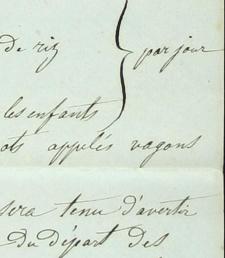 de riz
par jour
les enfants
ots appelés vagons
sera tenu d'avertir
du départ des